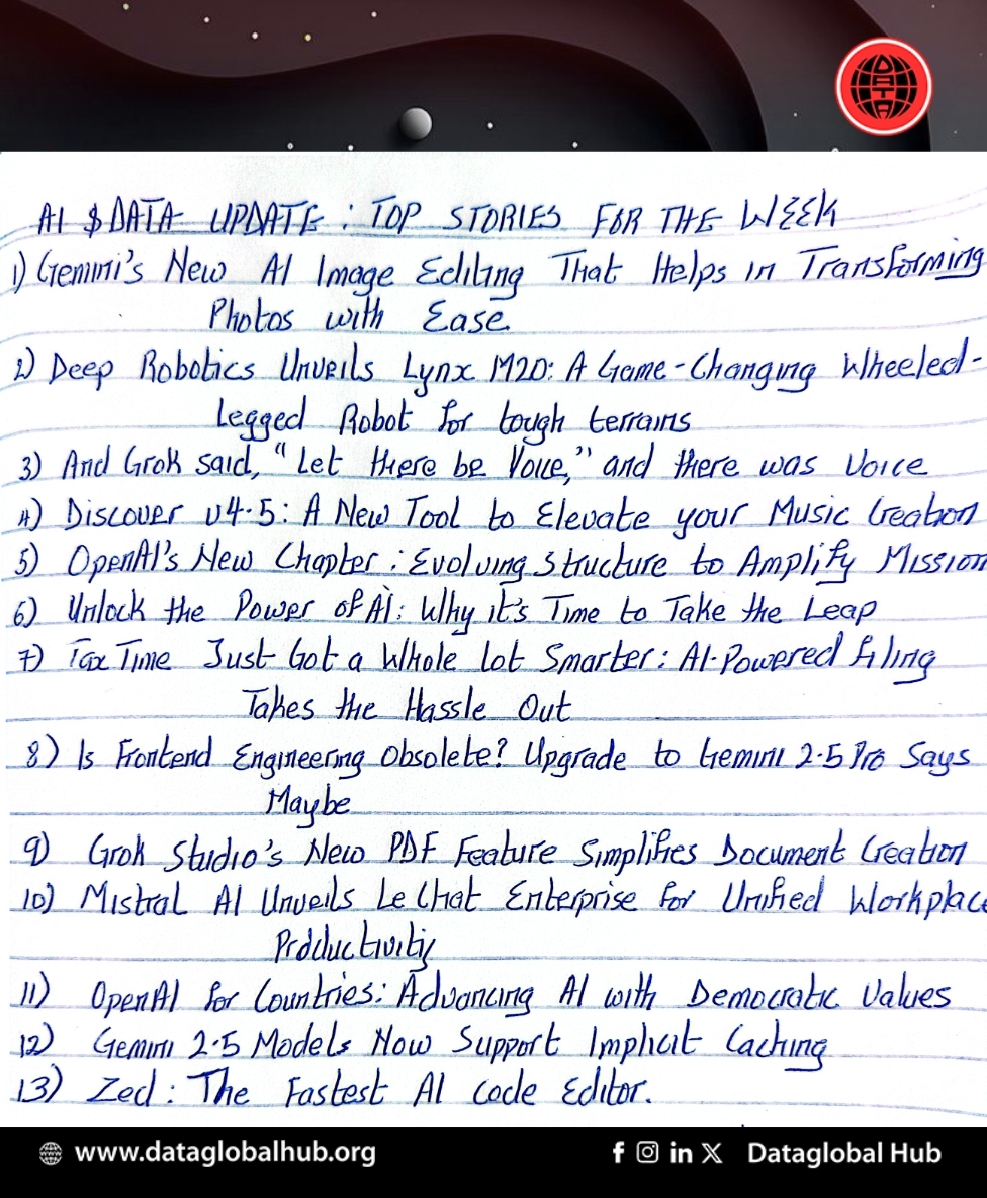 DATA
AI $ DATA UPDATE : TOP STORIES FOR THE WEEK
1) Gemini's New AI Image Editing That Helps in Transforming
Photos with Ease.
2) Deep Robotics Unveils Lynx M20: A Game-Changing Wheeled-
Legged Robot for tough terrains
3) And Grok said, "Let there be Voice," and there was Voice
4) Discover v4.5: A New Tool to Elevate your Music Creation
5) OpenAI's New Chapter : Evolving Structure to Amplify Mission
6) Unlock the Power of AI: Why it's Time to Take the Leap
7) Tax Time Just Got a Whole lot Smarter: AI-Powered filing
Takes the Hassle Out
8) Is Frontend Engineering Obsolete? Upgrade to Gemini 2.5 Pro Says
Maybe
9) Grok Studio's New PDF Feature Simplifies Document Creation
10) Mistral AI Unveils Le Chat Enterprise for Unified Workplace
Productivity
11) OpenAI for Countries: Advancing AI with Democratic Values
12) Gemini 2.5 Models Now Support Implicit Caching
13) Zed : The Fastest AI Code Editor.
www.dataglobalhub.org f in X Dataglobal Hub